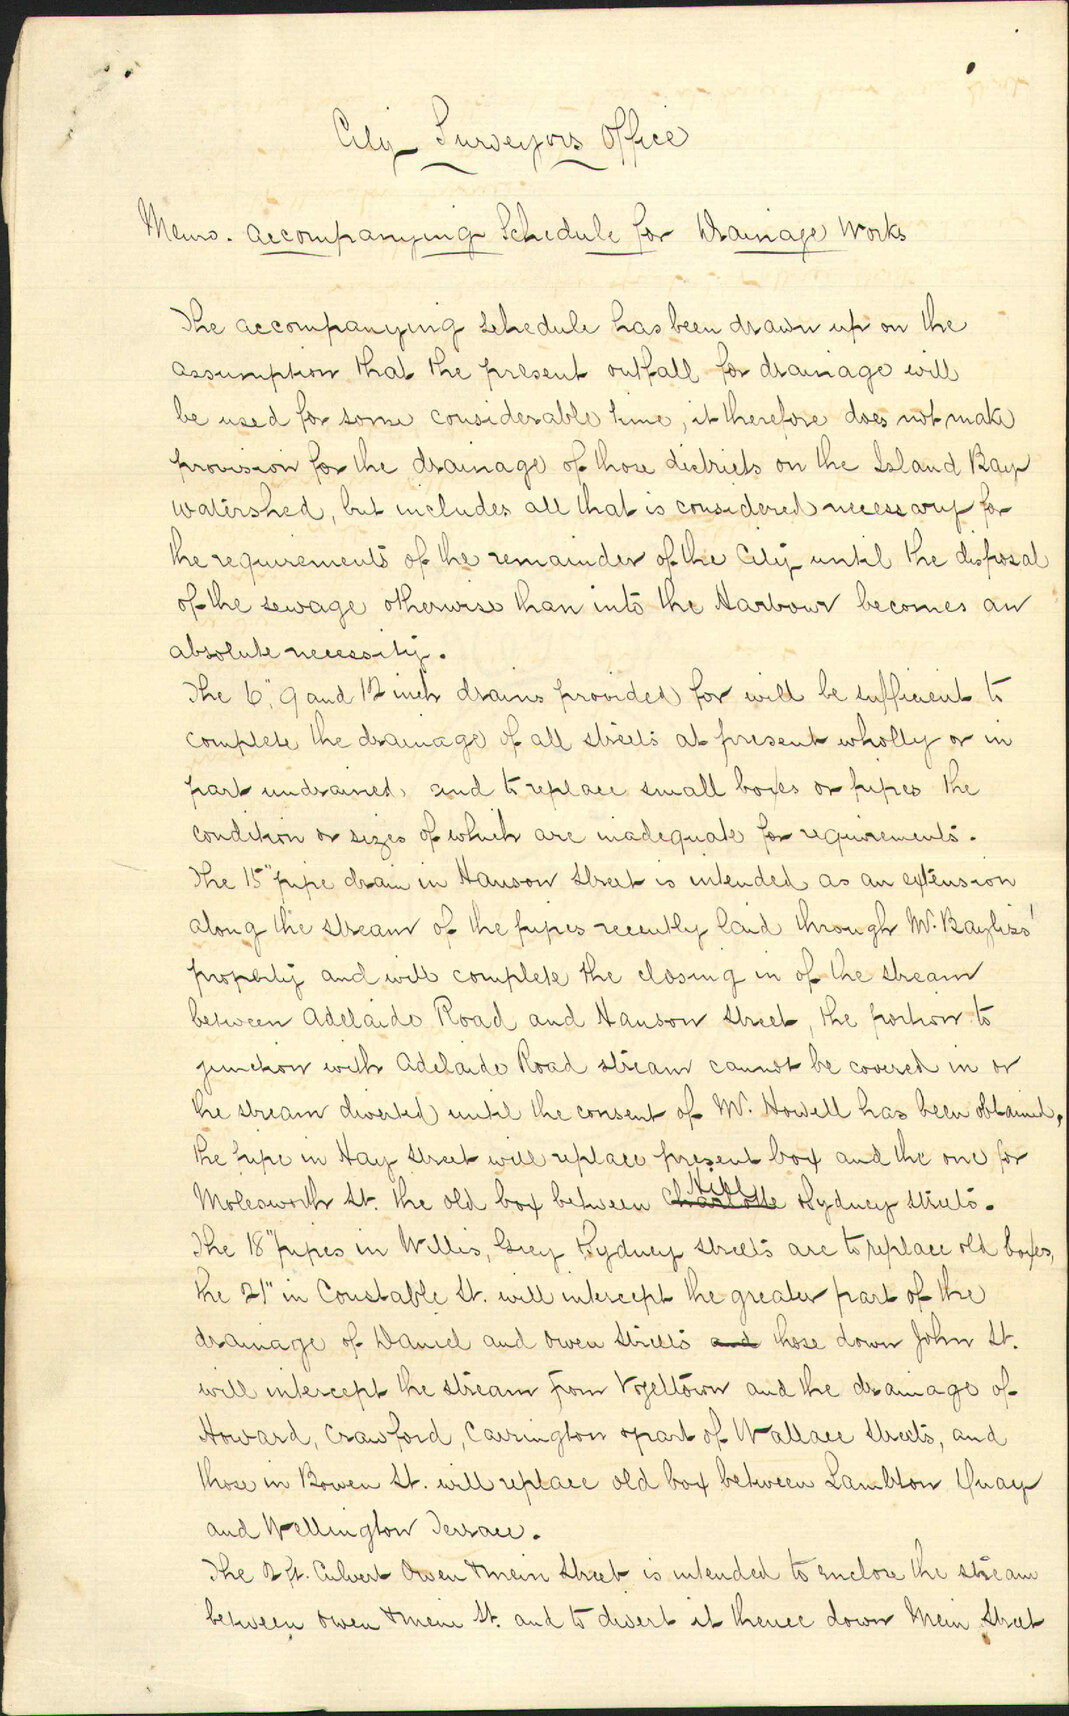 City Surveyors Office
Memo. accompanying Schedule for Drainage Works
The accompanying schedule has been drawn up on the
assumption that the present outfall for drainage will
be used for some considerable time, it therefore does not make
provision for the drainage of those districts on the Island Bay
watershed, but includes all that is considered necessary for
the requirements of the remainder of the City until the disposal
of the sewage otherwise than into the Harbour becomes an
absolute necessity.
The 6", 9 and 12 inch drains provided for will be sufficient to
complete the drainage of all streets at present wholly or in
part undrained, and to replace small boxes or pipes the
condition or sizes of which are inadequate for requirements.
The 15" pipe drain in Hanson Street is intended as an extension
along the stream of the pipes recently laid through Mr. Bayliss'
property and will complete the closing in of the stream
between Adelaide Road and Hanson Street, the portion to
junction with Adelaide Road stream cannot be covered in or
the stream diverted until the consent of Mr. Howell has been obtained,
the pipe in Hay Street will replace present box and the one for
Hill
Molesworth St. the old box between Charlotte & Sydney streets.
The 18" pipes in Willis, Grey & Sydney Streets are to replace old boxes,
the 21" in Constable St. will intercept the greater part of the
drainage of Daniel and Owen Streets and those down John St.
will intercept the stream from Vogeltown and the drainage of
Howard, Crawford, Carrington & part of Wallace Streets, and
those in Bowen St. will replace old box between Lambton Quay
and Wellington Terrace.
The 2 ft. Culvert Owen & Mein Street is intended to enclose the stream
between Owen & Mein St. and to divert it thence down Mein Street